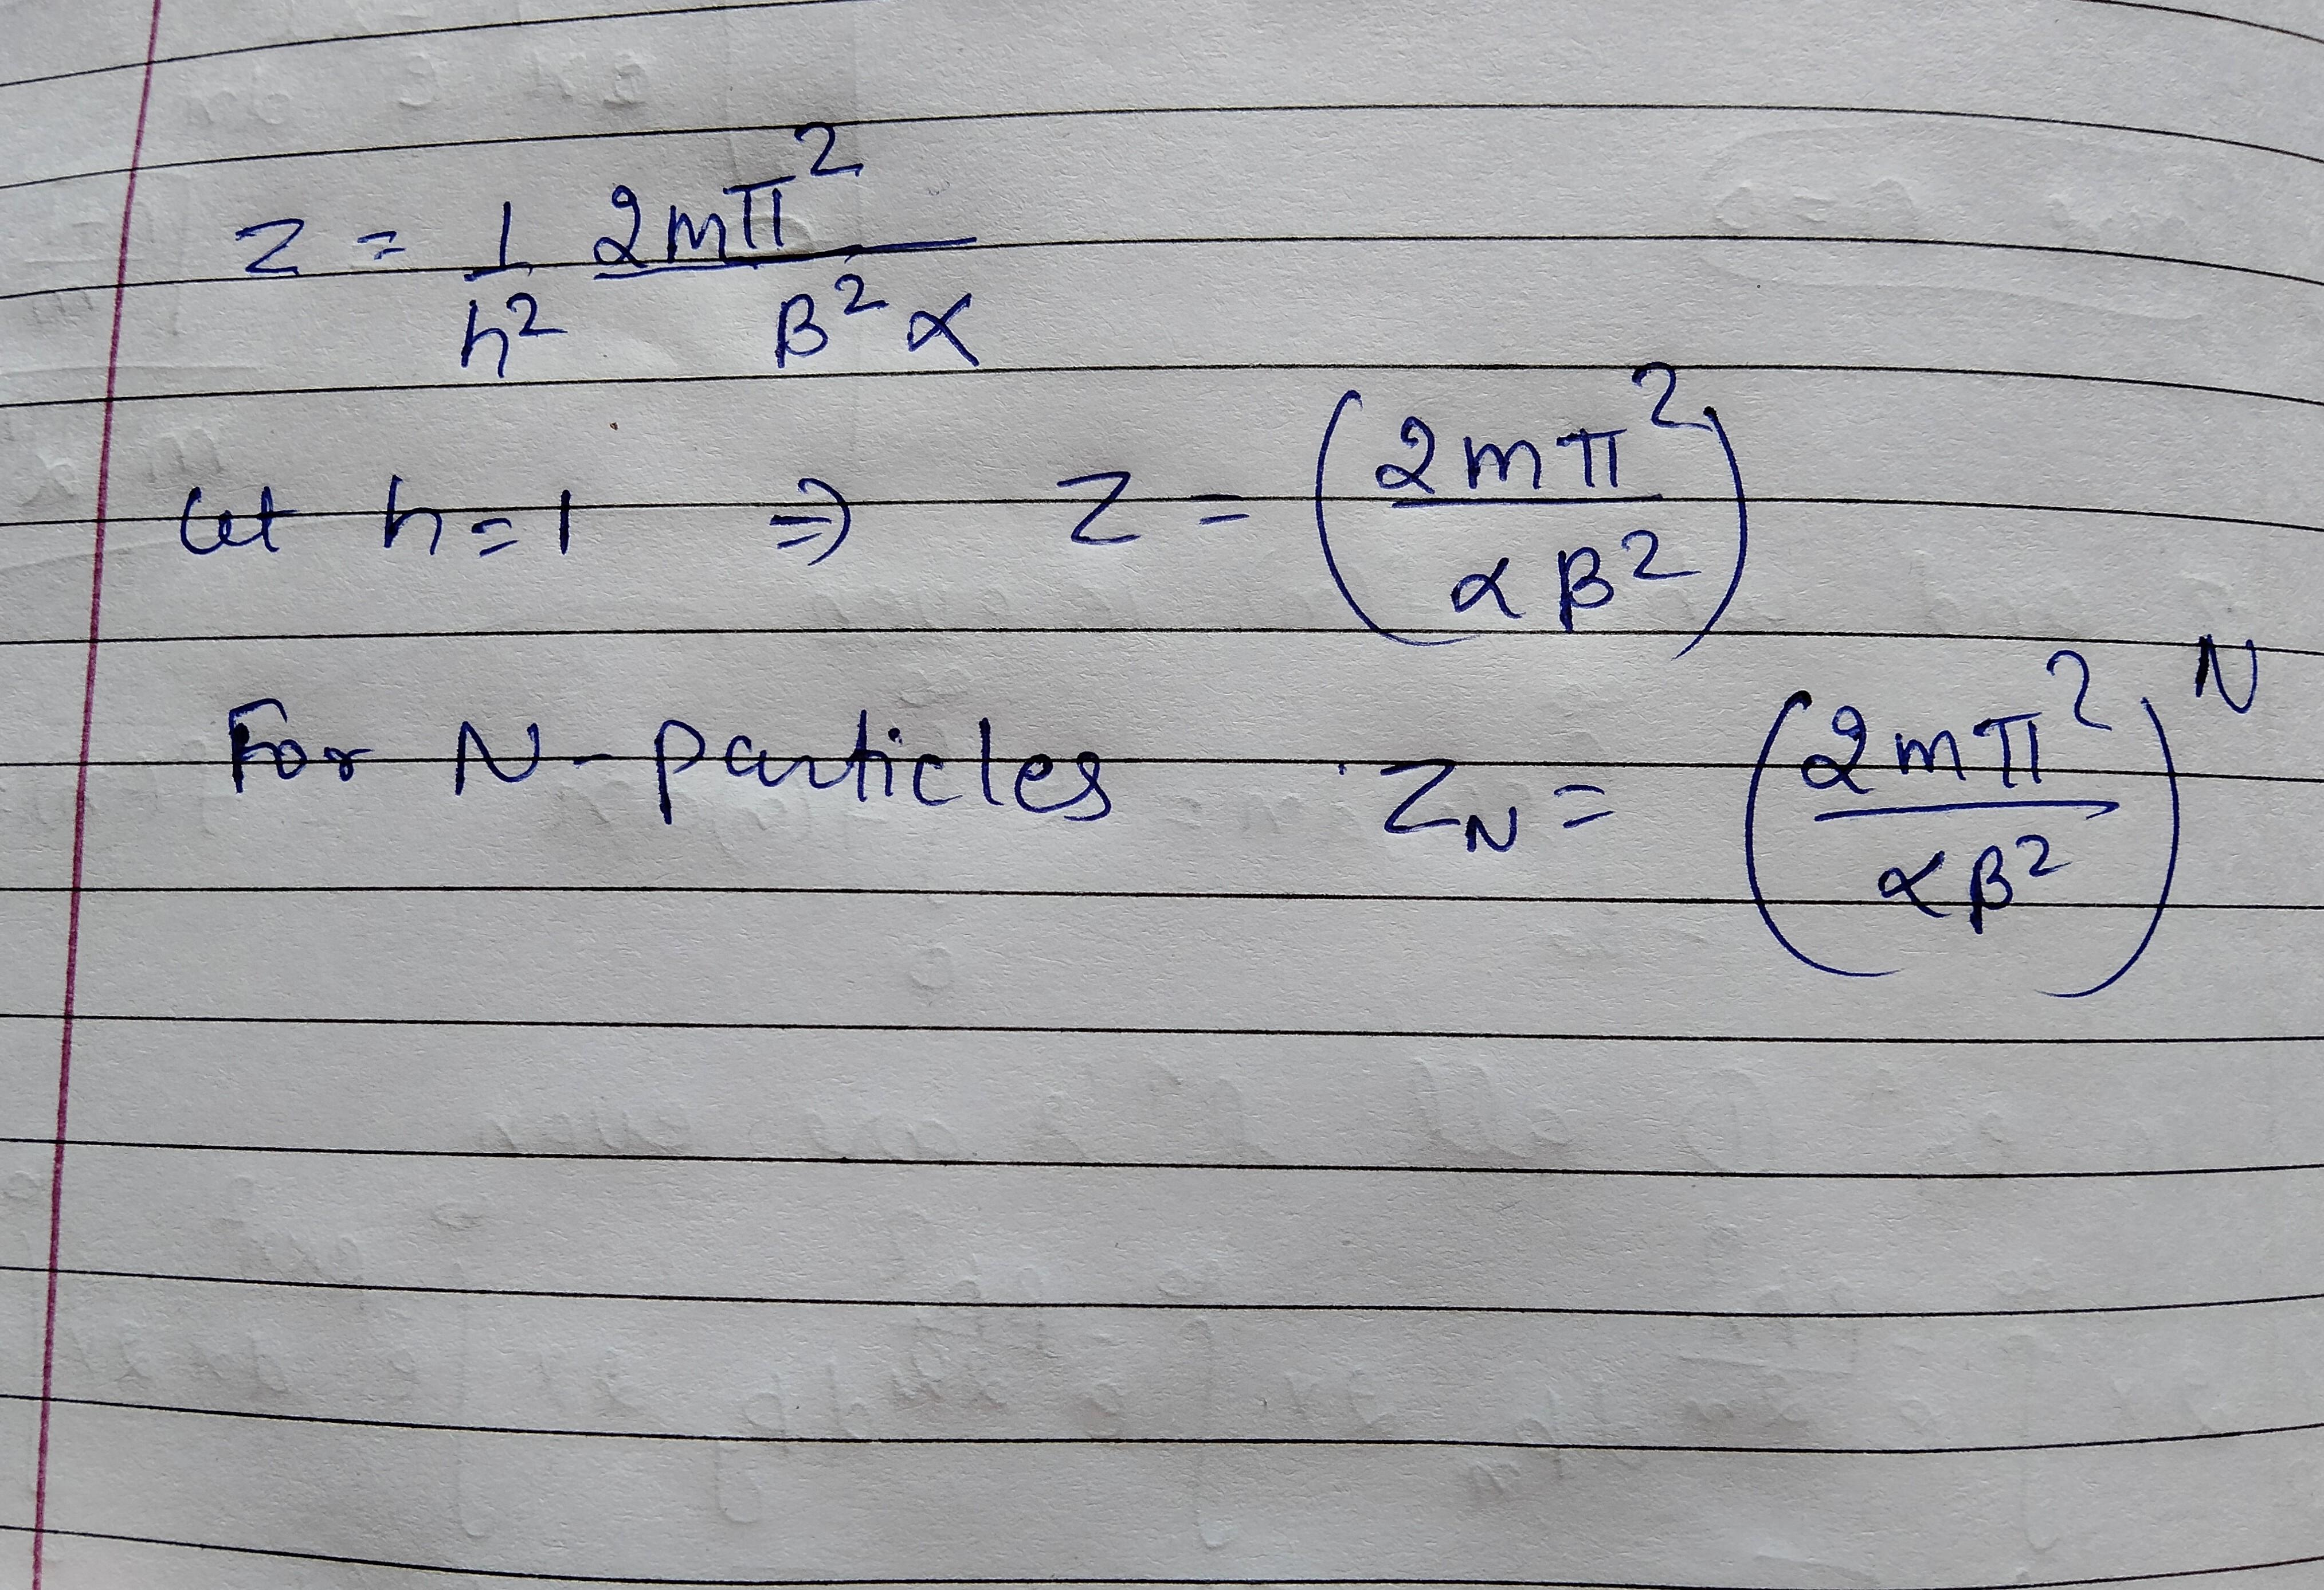 Z = 1/h² 2mπ²/β²α
let h=1 ⇒ Z = (2mπ²/αβ²)
For N-particles Z_N = (2mπ²/αβ²)^N